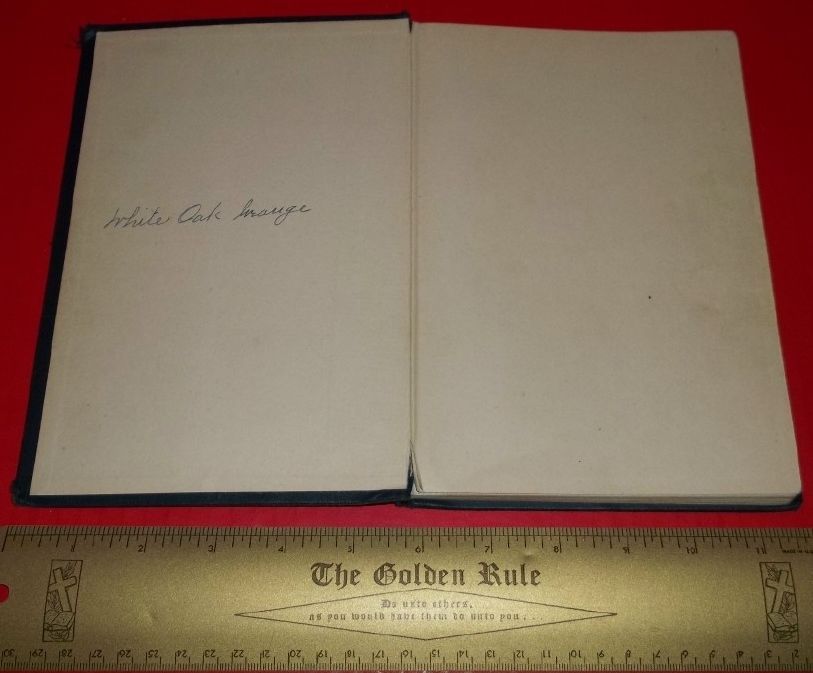 White Oak Grange
1 2 3 4 5 6 7 8 9 10 11
The Golden Rule
Do unto others,
as you would have them do unto you . . .
30 29 28 27 26 25 24 23 22 21 20 19 18 17 16 15 14 13 12 11 10 9 8 7 6 5 4 3 2